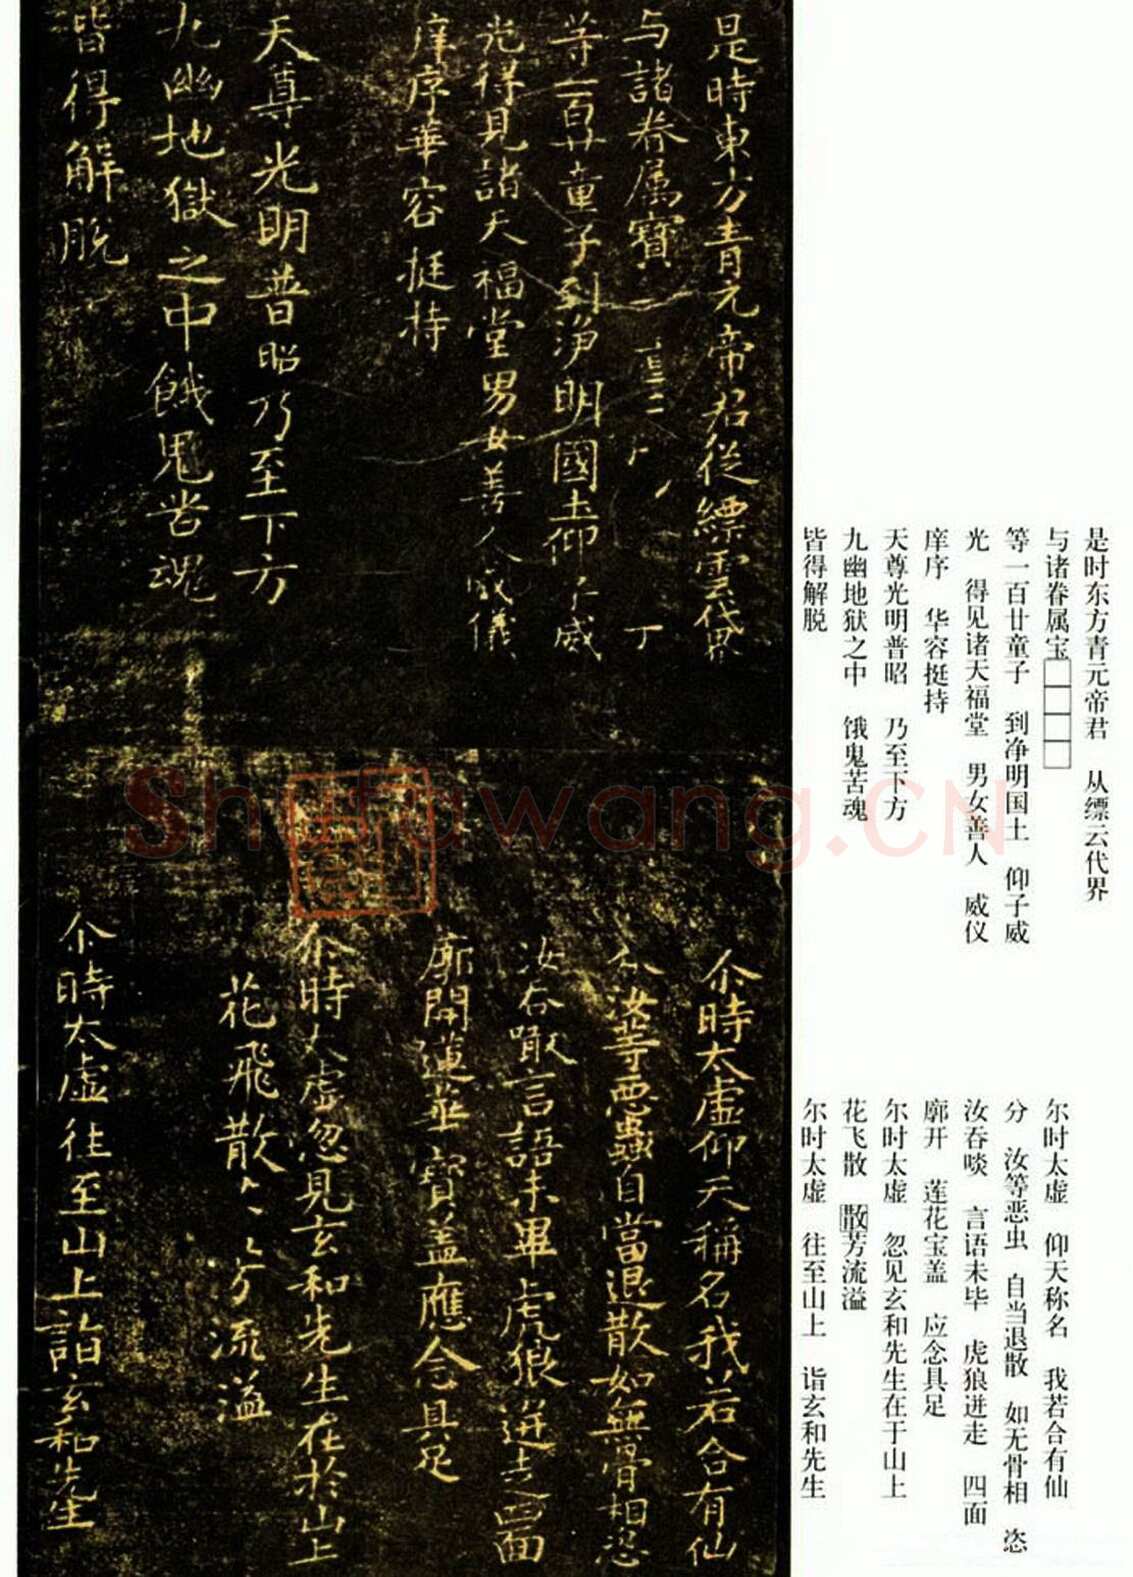 是時東方青元帝君從縹雲代界
与諸眷属寶
等一百廿童子到淨明國土仰子威
光得見諸天福堂男女善人威儀
庠序華容挺持
天尊光明普昭乃至下方
九幽地獄之中餓鬼苦魂
皆得解脱
尒時太虛仰天稱名我若合有仙
分汝等惡蟲自當退散如無骨相恣
汝吞噉言語未畢虎狼迸走四面
廓開蓮花寶盖應念具足
尒時太虛忽見玄和先生在於山上
花飛散〻〻芳流溢
尒時太虛往至山上詣玄和先生
是时东方青元帝君 从缥云代界
与诸眷属宝□□□□
等一百廿童子 到净明国土 仰子威
光 得见诸天福堂 男女善人 威仪
庠序 华容挺持
天尊光明普昭 乃至下方
九幽地狱之中 饿鬼苦魂
皆得解脱
尔时太虚 仰天称名 我若合有仙
分 汝等恶虫 自当退散 如无骨相 恣
汝吞啖 言语未毕 虎狼迸走 四面
廓开 莲花宝盖 应念具足
尔时太虚 忽见玄和先生在于山上
花飞散 散芳流溢
尔时太虚 往至山上 诣玄和先生
Shufawang.CN